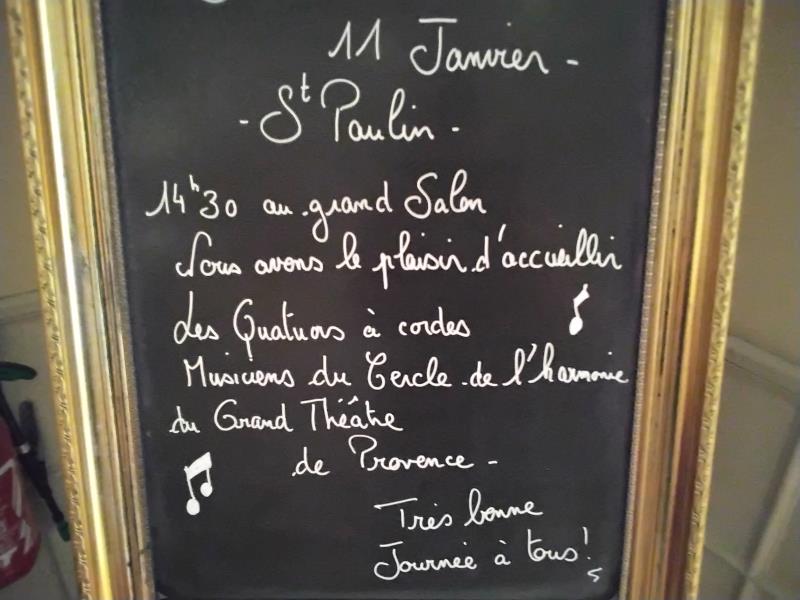 11 Janvier -
- St Paulin -
14h30 au grand Salon
Nous avons le plaisir d'accueillir
Les Quatuors à cordes
Musiciens du Cercle de l'harmonie
du Grand Théâtre
de Provence -
Très bonne
Journée à tous!